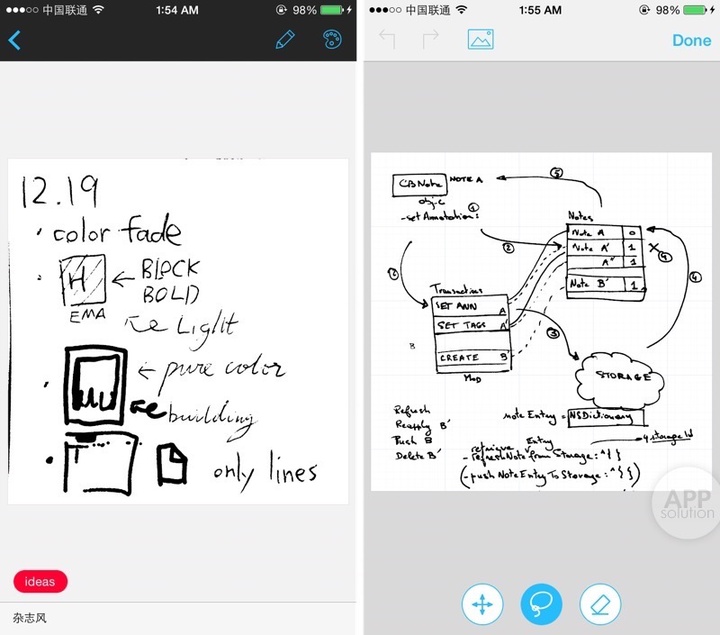 中国联通 1:54 AM 98%
12.19
color fade
H
BLOCK
BOLD
EMA
Light
pure color
building
only lines
ideas
杂志风
中国联通 1:55 AM 98%
Done
CBNote NOTE A
obj-c
- setAnnotation:
1
2
3
5
Notes
Note A 0
Note A' 1
A'' 1
Note B' 1
4
4
Transactions
SET ANN A
SET TAGS A'
CREATE B'
B
STORAGE
Refresh
Reapply B'
Push B
Delete B'
noteEntry = NSDictionary
storage Id
retrieve Entry
- refreshNote from Storage: ^{ }
(- push NoteEntry To Storage: ^{ })
APP
solution